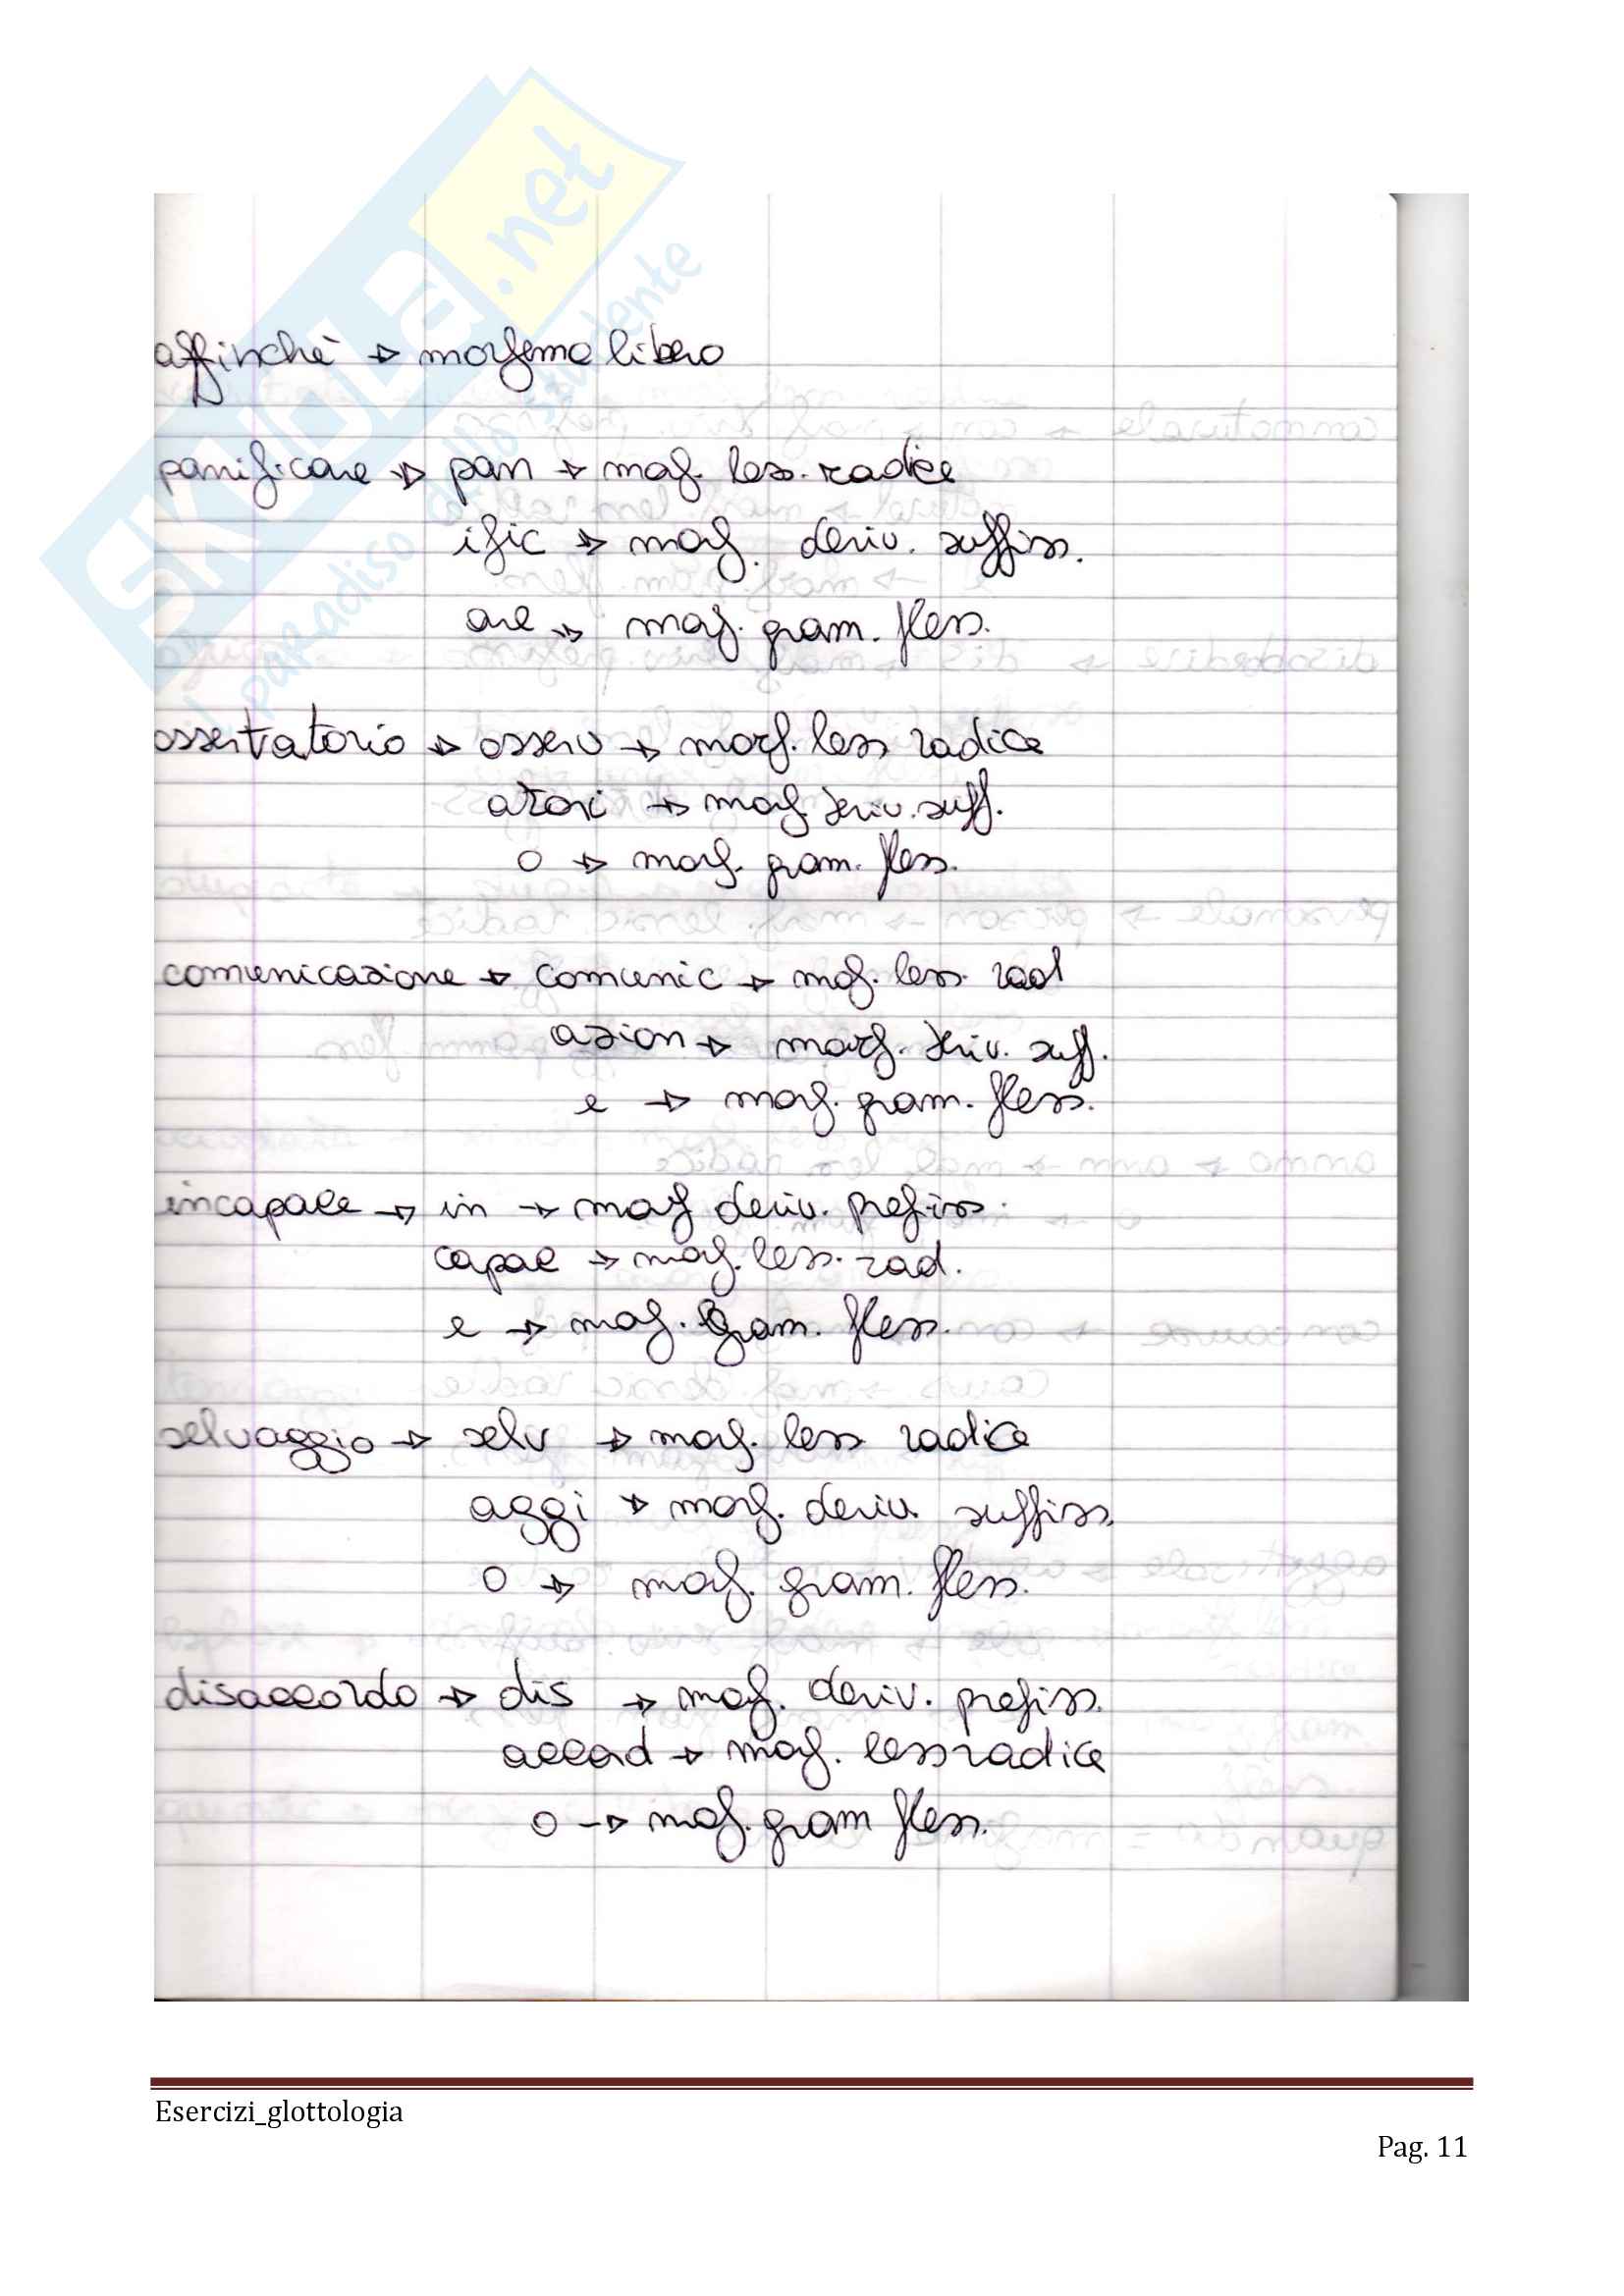 SKUOLA.net
il paradiso dello studente
affinchè → morfema libero
panificare → pan → morf. less. radice
ific → morf. deriv. suffiss.
are → morf. gram. fless.
osservatorio → osserv → morf. less radice
atori → morf. deriv. suff.
o → morf. gram. fless.
comunicazione → comunic → morf. less. rad
azion → morf. deriv. suff.
e → morf. gram. fless.
incapace → in → morf deriv. prefiss.
capac → morf. less. rad.
e → morf. gram. fless.
selvaggio → selv → morf. less radice
aggi → morf. deriv. suffiss.
o → morf. gram. fless.
disaccordo → dis → morf. deriv. prefiss.
accord → morf. less radice
o → morf. gram fless.
Esercizi_glottologia
Pag. 11